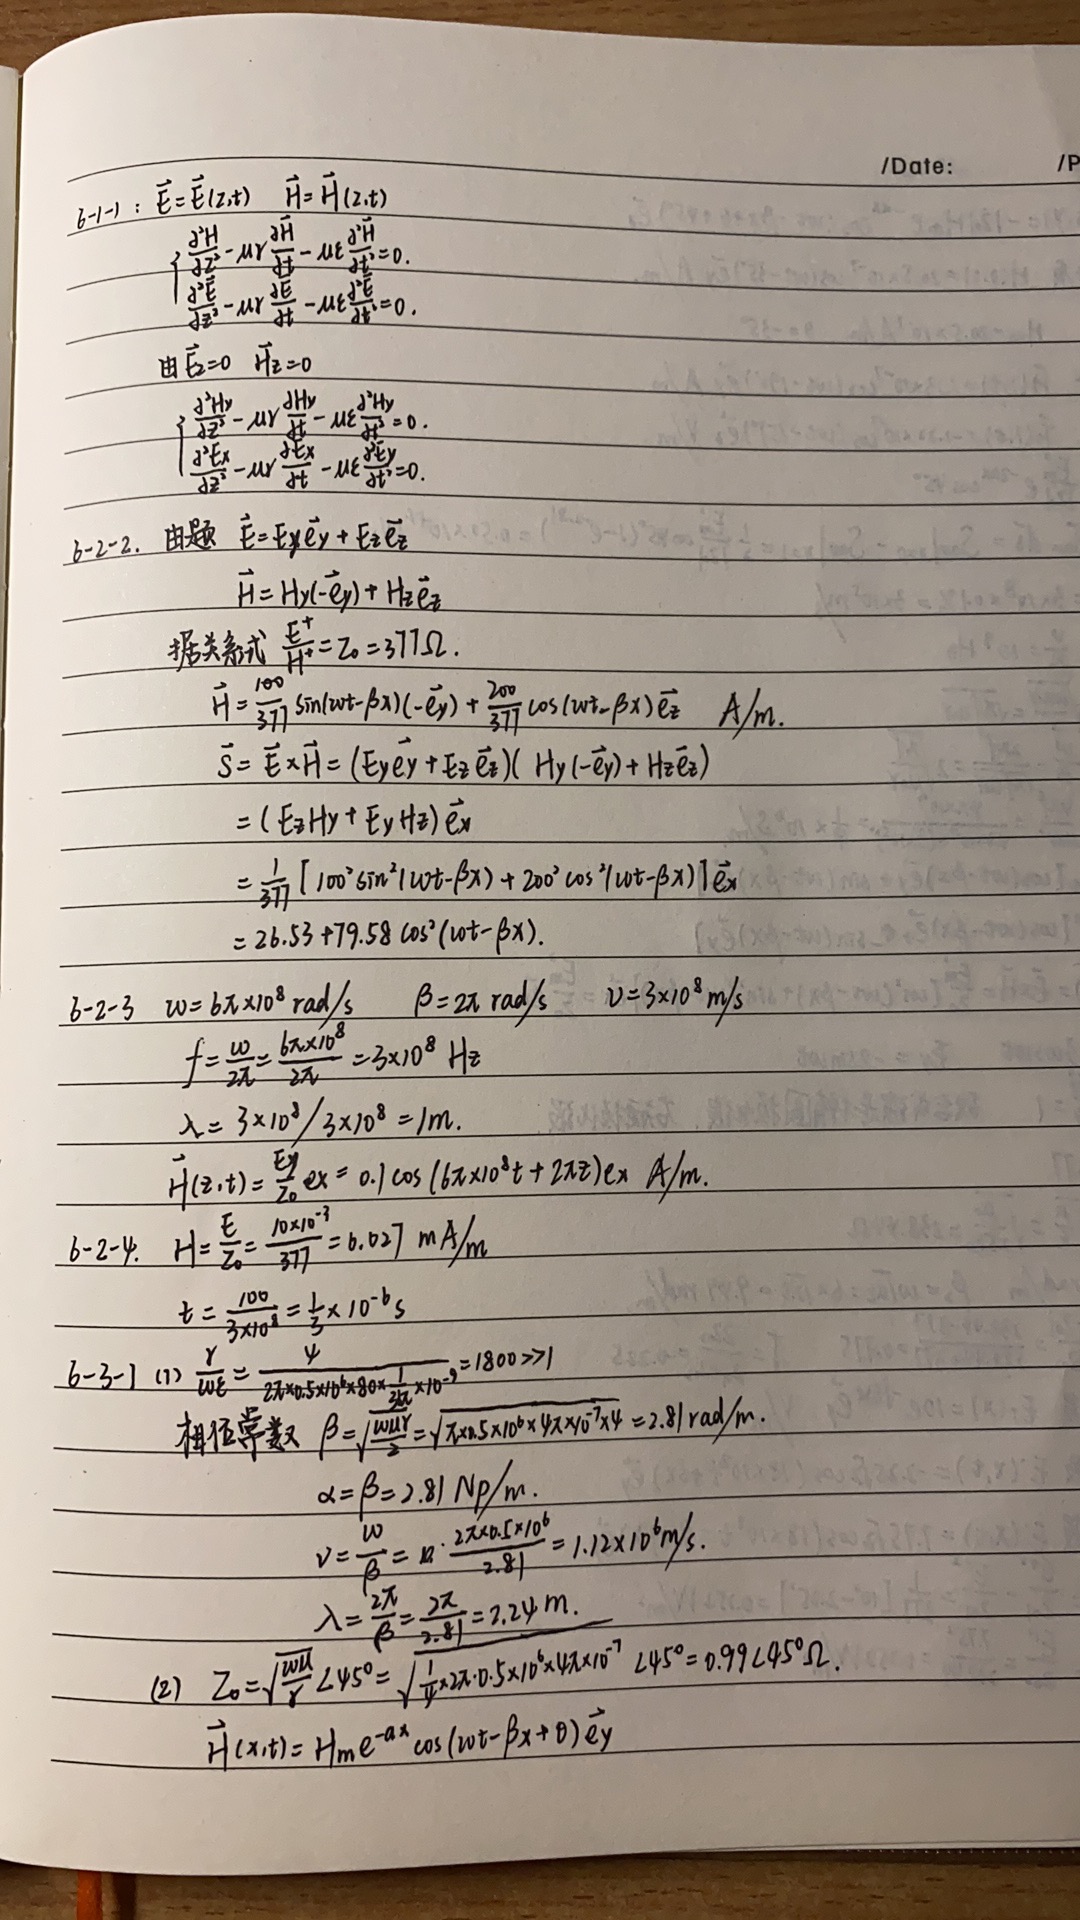 /Date: /P
6-1-1: E⃗=E⃗(z,t) H⃗=H⃗(z,t)
{ ∂²H⃗/∂z² - μγ ∂H⃗/∂t - με ∂²H⃗/∂t² = 0.
∂²E⃗/∂z² - μγ ∂E⃗/∂t - με ∂²E⃗/∂t² = 0.
由 E⃗z=0 H⃗z=0
{ ∂²Hy/∂z² - μγ ∂Hy/∂t - με ∂²Hy/∂t² = 0.
∂²Ex/∂z² - μγ ∂Ex/∂t - με ∂²Ey/∂t² = 0.
6-2-2. 由题 E⃗=Ey e⃗y + Ez e⃗z
H⃗ = Hy(-e⃗y) + Hz e⃗z
据关系式 E⁺/H⁺ = Z₀ = 377Ω.
H⃗ = 100/377 sin(ωt-βx)(-e⃗y) + 200/377 cos(ωt-βx) e⃗z A/m.
S⃗ = E⃗×H⃗ = (Ey e⃗y + Ez e⃗z)( Hy(-e⃗y) + Hz e⃗z)
= (EzHy + EyHz) e⃗x
= 1/377 [100² sin²(ωt-βx) + 200² cos²(ωt-βx)] e⃗x
= 26.53+79.58 cos²(ωt-βx).
6-2-3 ω=6π×10⁸ rad/s β=2π rad/s v=3×10⁸ m/s
f = ω/2π = 6π×10⁸/2π = 3×10⁸ Hz
λ = 3×10⁸/3×10⁸ = 1m.
H⃗(z,t) = Ey/Z₀ ex = 0.1 cos(6π×10⁸t + 2πz)ex A/m.
6-2-4. H = E/Z₀ = 10×10⁻³/377 = 0.027 mA/m
t = 100/3×10⁸ = 1/3 × 10⁻⁶ s
6-3-1 (1) γ/ωε = 4/(2π×0.5×10⁶×80×1/36π×10⁻⁹) = 1800>>1
相位常数 β = √(ωμγ/2) = √(π×0.5×10⁶×4π×10⁻⁷×4) = 2.81 rad/m.
α = β = 2.81 Np/m.
v = ω/β = 2π×0.5×10⁶/2.81 = 1.12×10⁶ m/s.
λ = 2π/β = 2π/2.81 = 2.24 m.
(2) Z₀ = √(ωμ/γ) ∠45° = √(1/4×2π·0.5×10⁶×4π×10⁻⁷) ∠45° = 0.99∠45°Ω.
H⃗(x,t) = Hm e^-αx cos(ωt-βx+θ) e⃗y